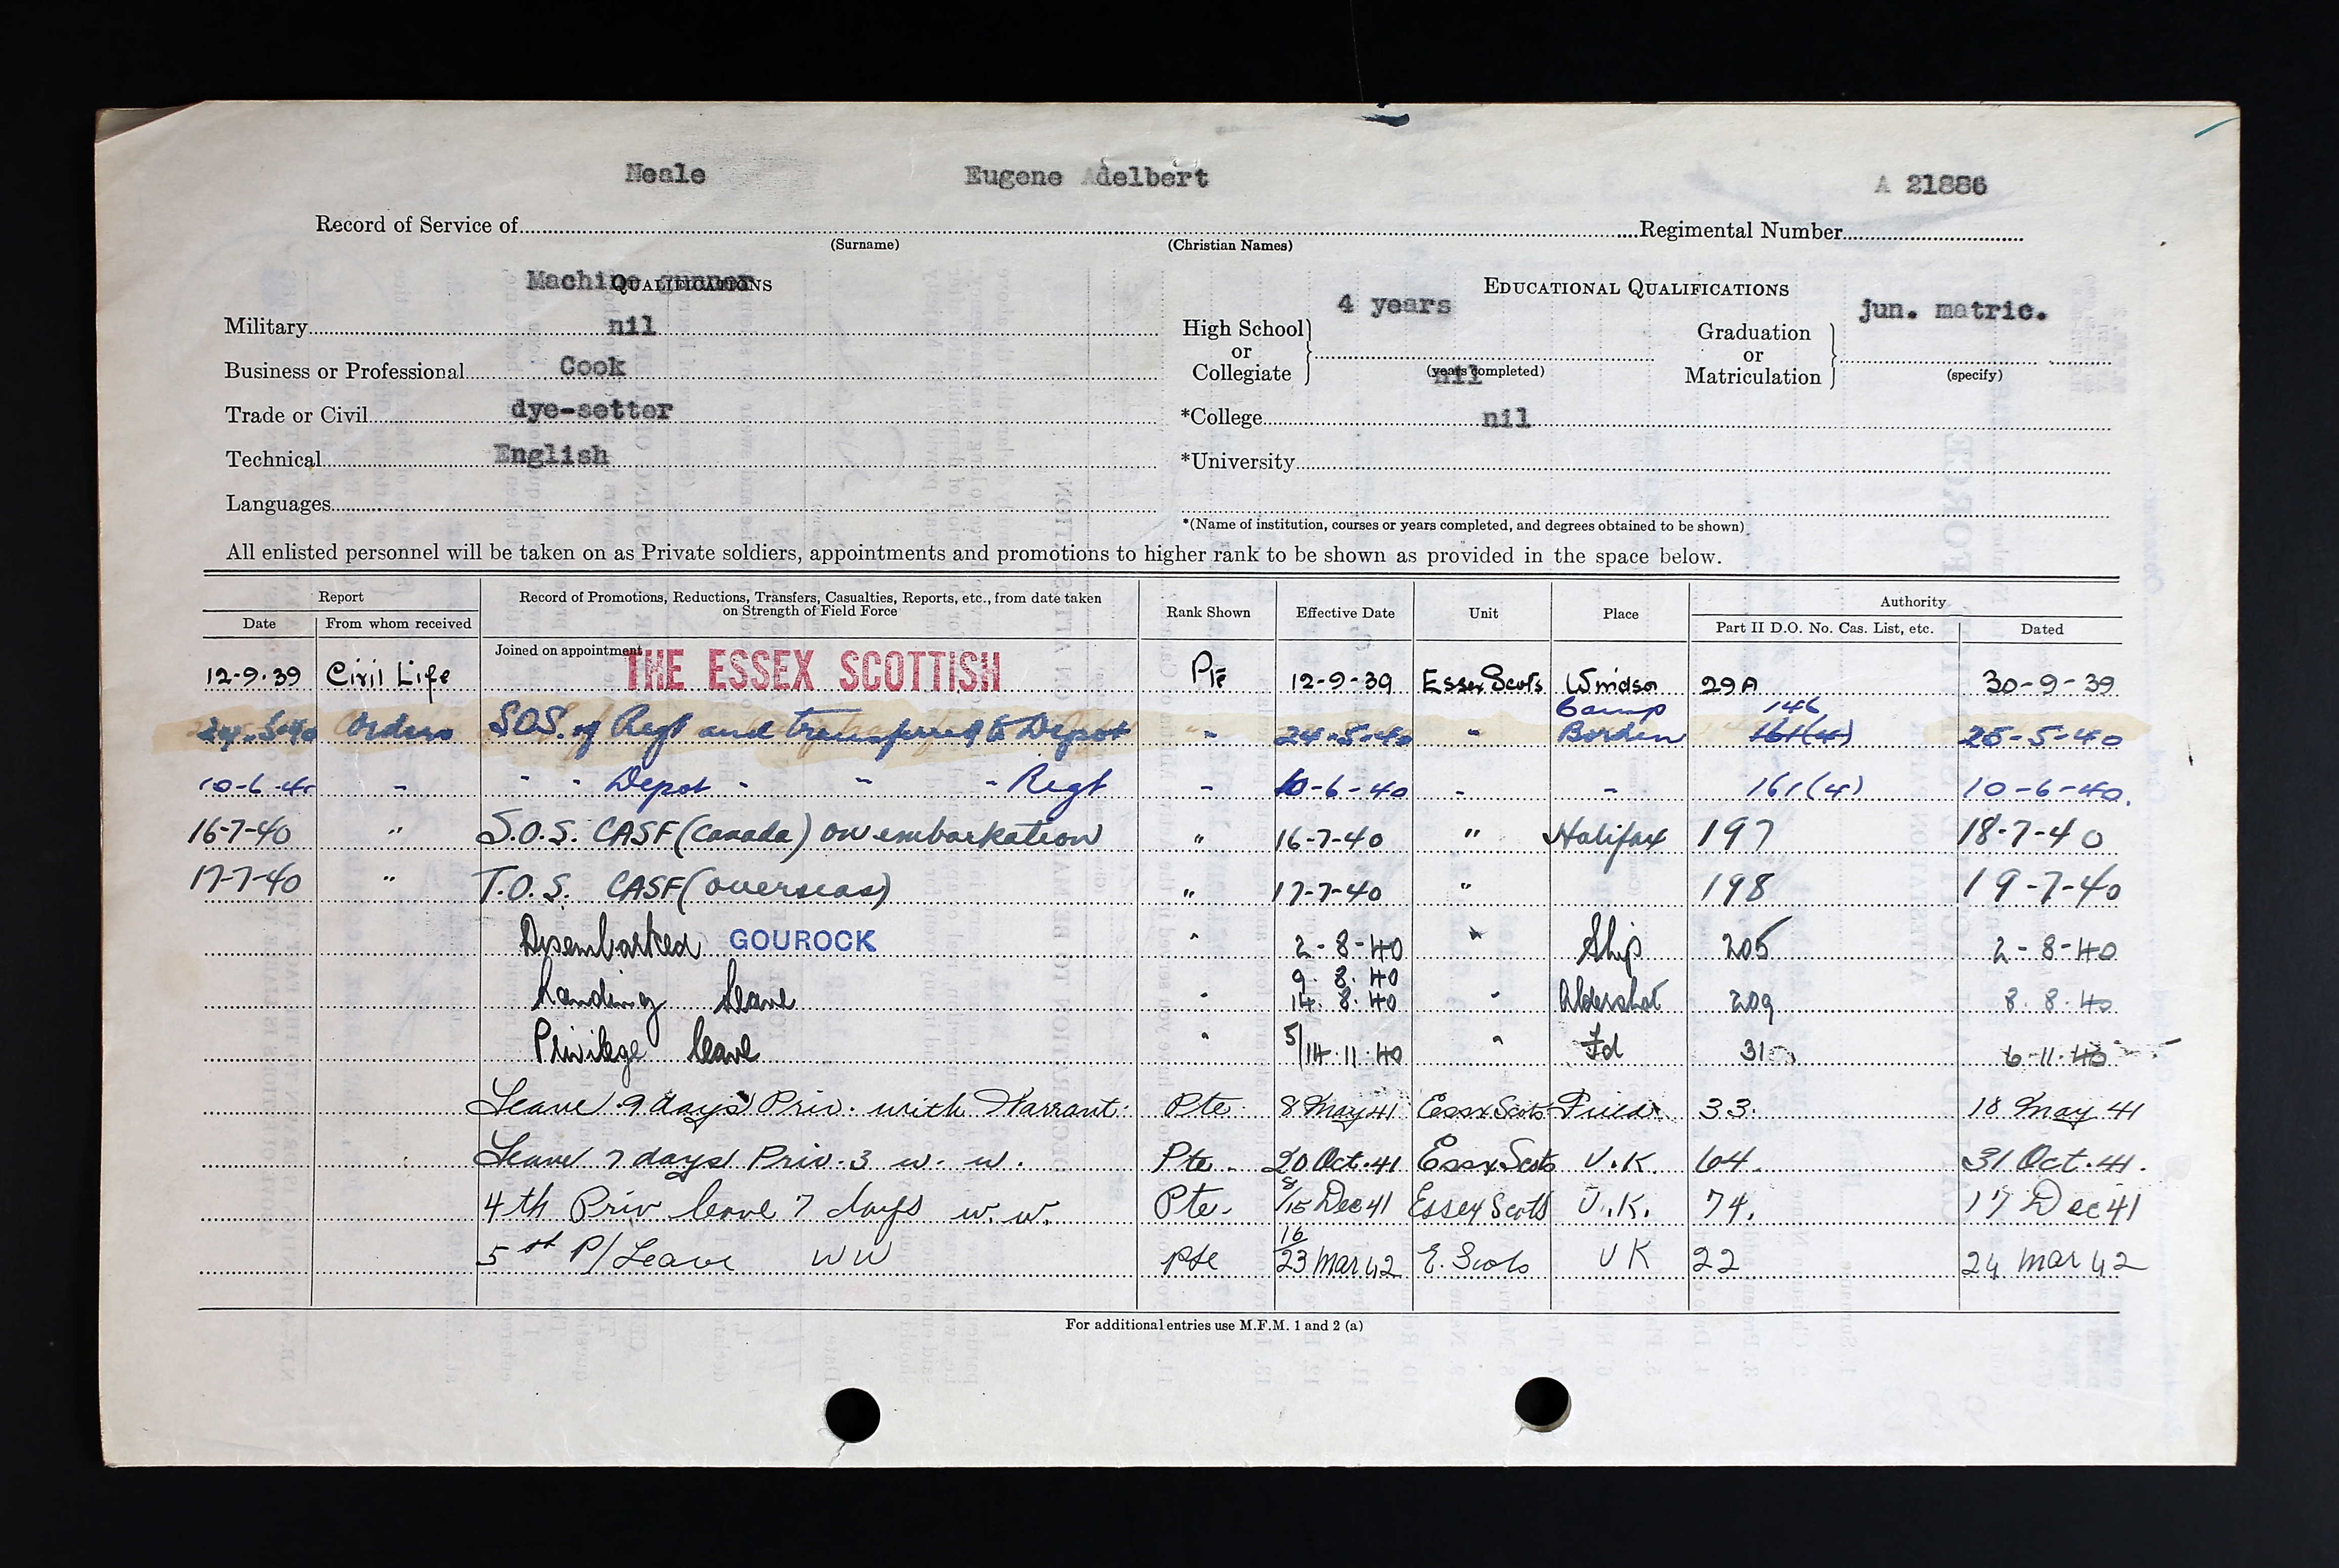 Neale Eugene Adelbert A 21886
Record of Service of (Surname) (Christian Names) Regimental Number
Machine gunner
QUALIFICATIONS
EDUCATIONAL QUALIFICATIONS
Military nil
Business or Professional Cook
Trade or Civil dye-setter
Technical English
Languages
High School or Collegiate 4 years (years completed)
Graduation or Matriculation jun. matric. (specify)
nil
*College nil
*University
*(Name of institution, courses or years completed, and degrees obtained to be shown)
All enlisted personnel will be taken on as Private soldiers, appointments and promotions to higher rank to be shown as provided in the space below.
Report
Record of Promotions, Reductions, Transfers, Casualties, Reports, etc., from date taken on Strength of Field Force
Rank Shown
Effective Date
Unit
Place
Authority
Date
From whom received
Part II D.O. No. Cas. List, etc.
Dated
Joined on appointment
12-9-39 Civil Life THE ESSEX SCOTTISH Pte 12-9-39 Essex Scots Windsor 29A 30-9-39
24-5-40 Orders S.O.S. of Regt and transferred to Depot " 24-5-40 " Camp Borden 146 161(4) 25-5-40
10-6-40 " " " Depot " " " Regt " 10-6-40 " " 161(4) 10-6-40.
16-7-40 " S.O.S. CASF (Canada) on embarkation " 16-7-40 " Halifax 197 18-7-40
17-7-40 " T.O.S. CASF (overseas) " 17-7-40 " 198 19-7-40
Disembarked GOUROCK " 2-8-40 " Ship 205 2-8-40
Landing leave " 9.8.40 14.8.40 " Aldershot 209 8.8.40
Privilege leave " 5/14.11.40 " Fd 6-11-40
Leave 9 days Priv. with Warrant. Pte. 8 May 41 Essex Scots Field 33. 18 May 41
Leave 7 days Priv. 3 w. w. Pte. 20 Oct. 41 Essex Scots U.K. 64. 31 Oct. 41.
4th Priv leave 7 days w. w. Pte. 8/15 Dec 41 Essex Scots U.K. 74. 17 Dec 41
5st P/Leave WW Pte 16/23 Mar 42 E. Scots UK 22 24 Mar 42
For additional entries use M.F.M. 1 and 2 (a)